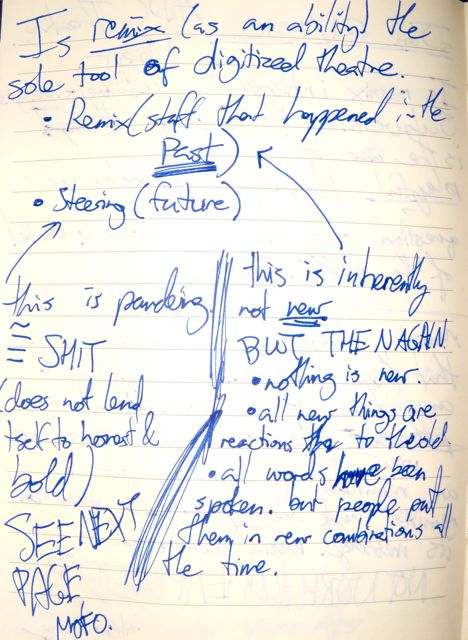 Is remix (as an ability) the
sole tool of digitized theatre.
• Remix (stuff that happened in the
Past)
• Steering (future)
this is pandering
≅ SHIT
(does not lend
itself to honest &
bold)
SEE NEXT
PAGE
MOFO.
this is inherently
not new
BUT THEN AGAIN
• nothing is new.
• all new things are
reactions to the old.
• all words have been
spoken. but people put
them in new combinations all
the time.